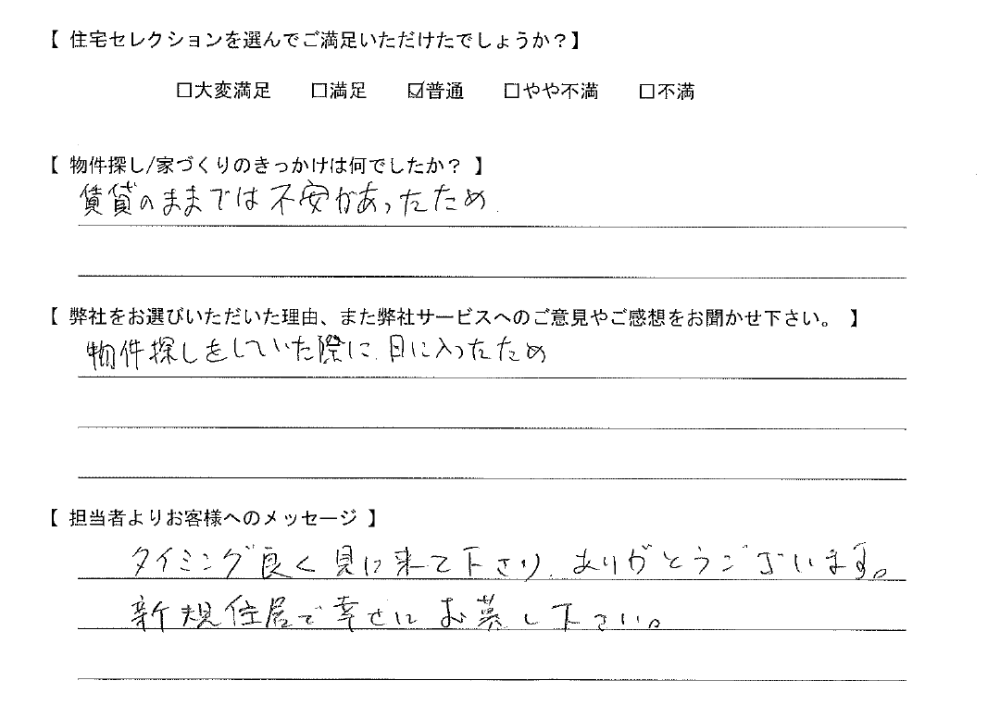 【 住宅セレクションを選んでご満足いただけたでしょうか？】
□大変満足 □満足 ☑普通 □やや不満 □不満
【 物件探し/家づくりのきっかけは何でしたか？ 】
賃貸のままでは不安があったため.
【 弊社をお選びいただいた理由、また弊社サービスへのご意見やご感想をお聞かせ下さい。 】
物件探しをしていた際に、目に入ったため
【 担当者よりお客様へのメッセージ 】
タイミング良く見に来て下さり、ありがとうございます。
新規住居で幸せにお暮し下さい。